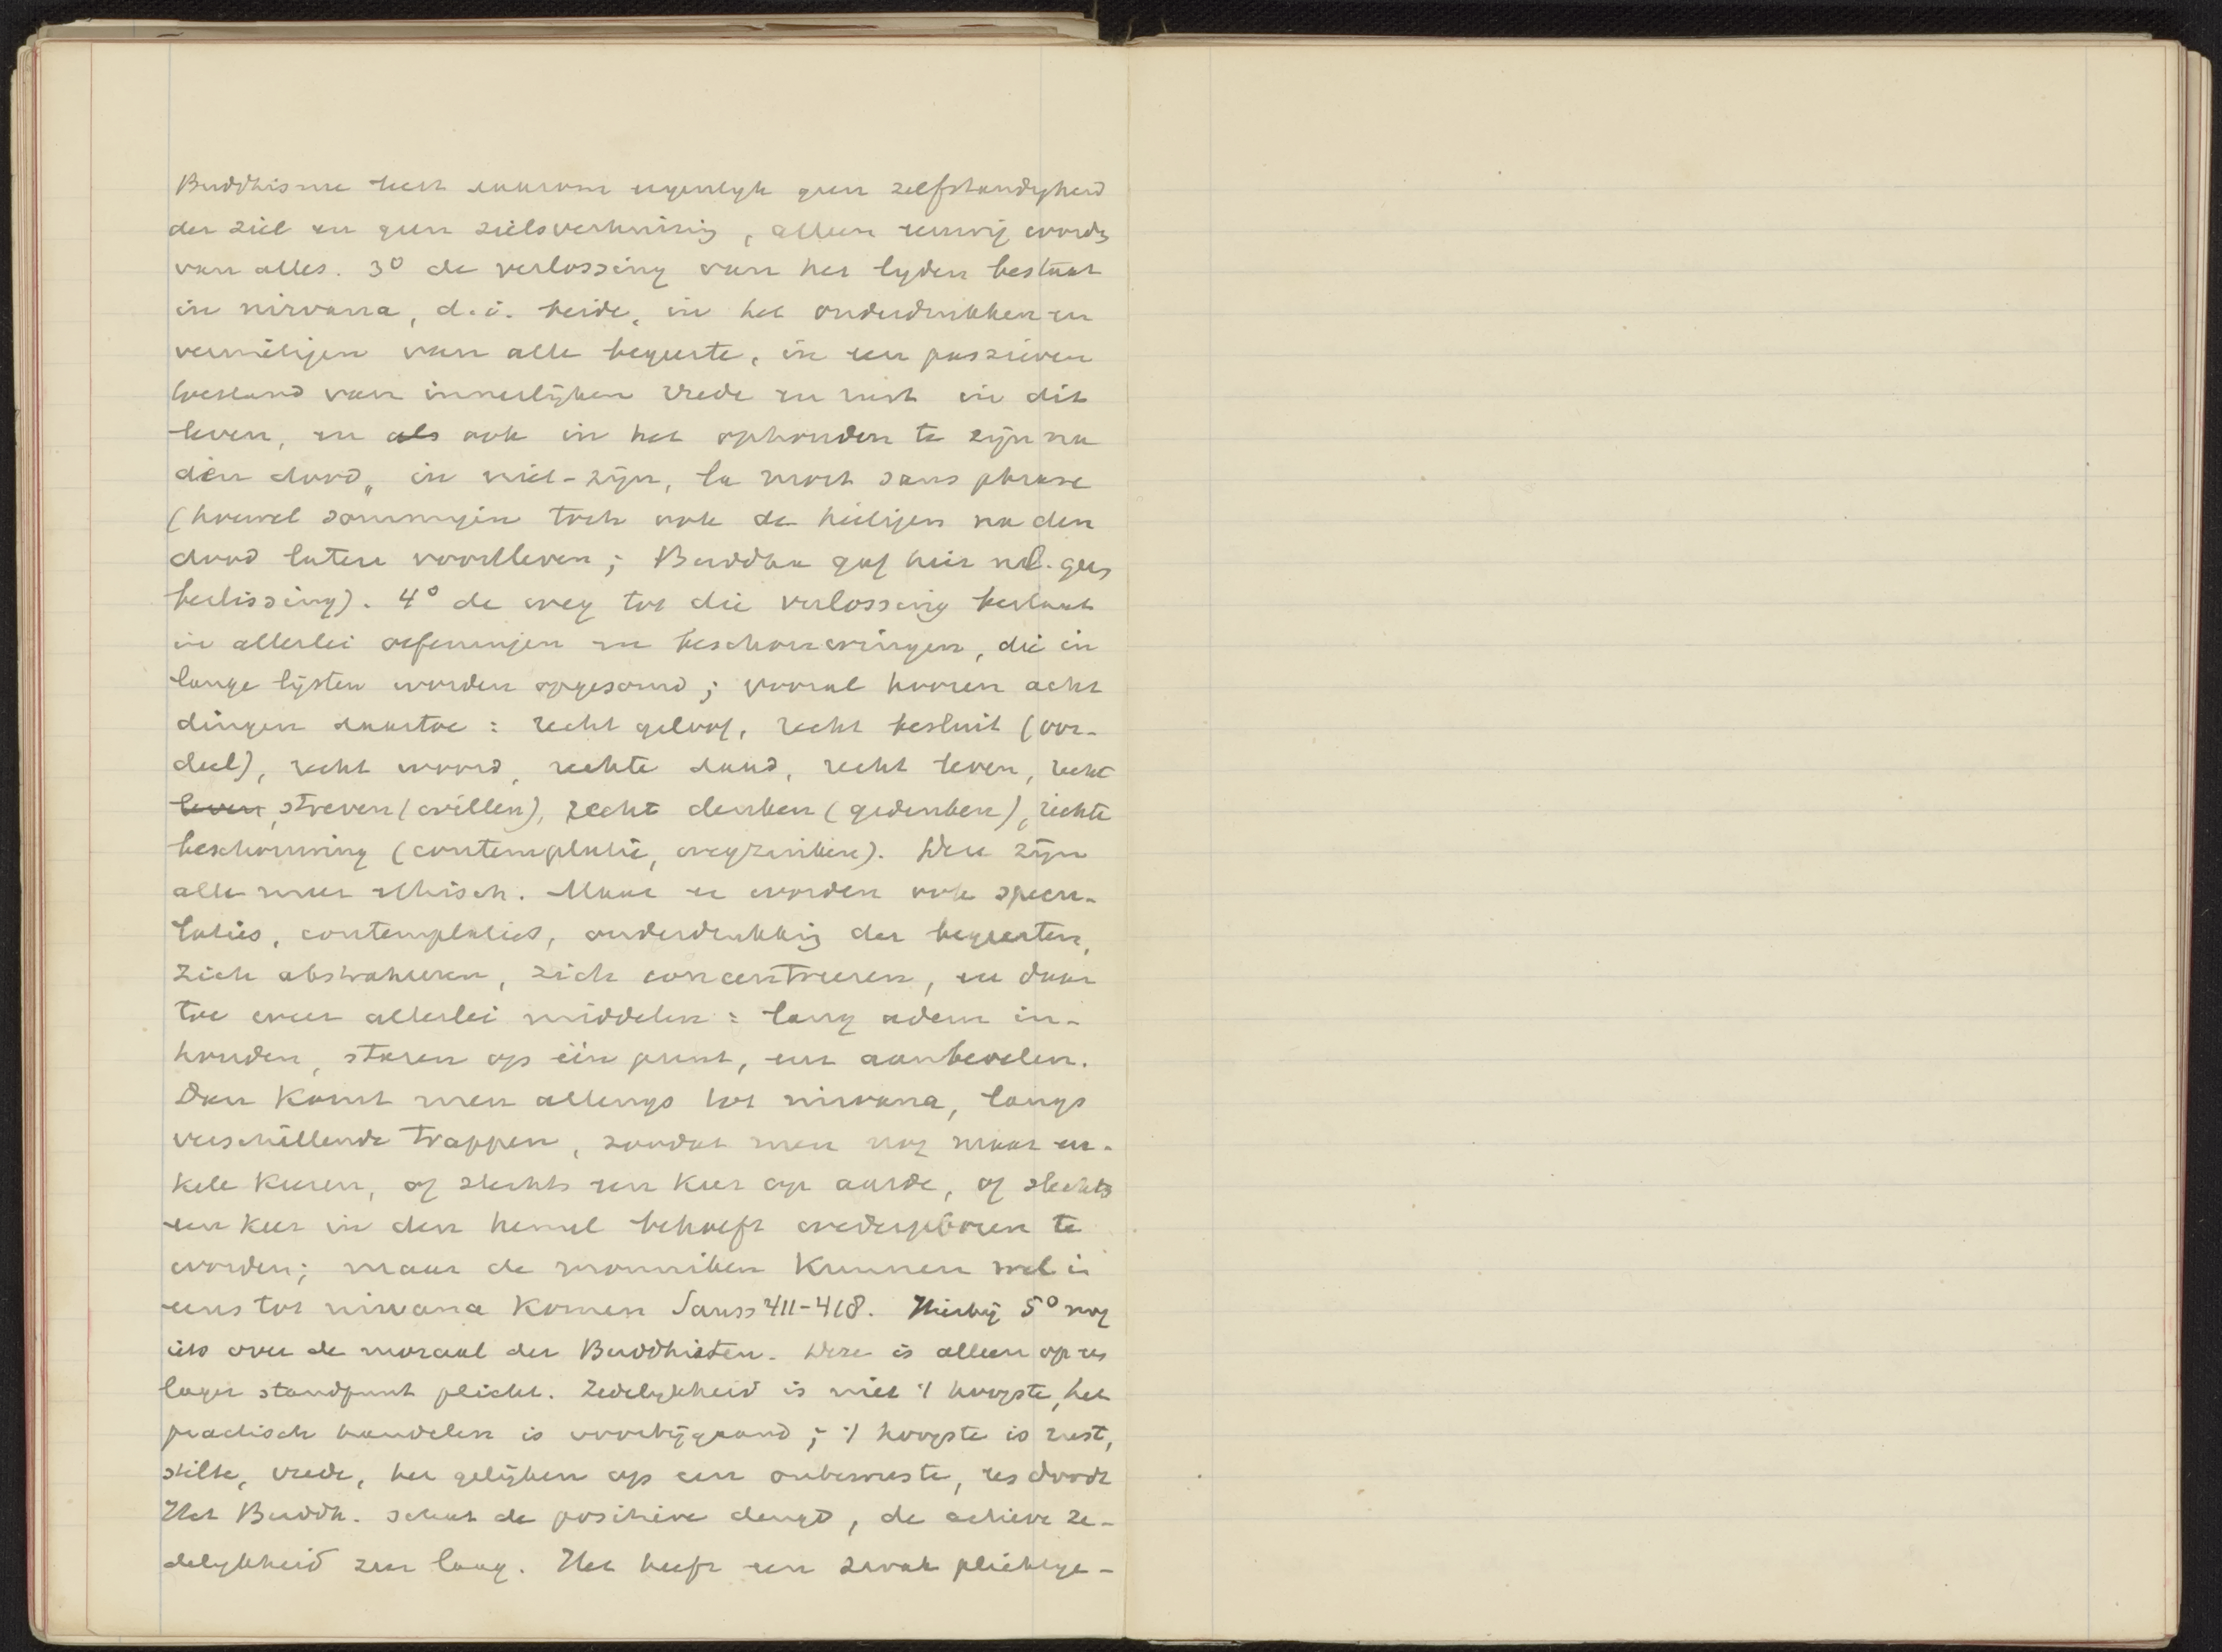 Buddhisme leert daarom eigenlyk geen zelfstandigheid
der ziel en geen zielsverhuizing, alleen eeuwig worden
van alles. 3° de verlossing van het lyden bestaat
in nirvana, d.i. beide, in het onderdrukken en
vernietigen van alle begeerte, in een passieven
toestand van innerlijken vrede en rust in dit
leven, en als ook in het ophouden te zijn na
dien dood, in niet-zijn, la mort sans phrase
(hoewel sommigen toch ook de heiligen na den
dood laten voortleven; Buddha gaf hier nl. geen
beslissing). 4° de weg tot die verlossing bestaat
in allerlei oefeningen en beschouwingen, die in
lange lijsten worden opgesomd; vooral hooren acht
dingen daartoe: recht geloof, recht besluit (oor-
deel), recht woord, rechte daad, recht leven, recht
leven, streven (willen), recht denken (gedenken), rechte
beschouwing (contemplatie, wegzinken). Deze zijn
alle meer ethisch. Maar er worden ook specu-
laties, contemplaties, onderdrukking der begeerten,
zich abstraheeren, zich concentreeren, en daar
toe weer allerlei middelen: lang adem in-
houden, staren op één punt, enz aanbevolen.
Dan komt men allengs tot nirvana, langs
verschillende trappen, zoodat men nog maar en-
kele keeren, of slechts een keer op aarde, of slechts
een keer in den hemel behoeft wedergeboren te
worden; maar de monniken kunnen wel in
eens tot nirvana komen Sauss 411-418. Hierbij 5° nog
iets over de moraal der Buddhisten. Deze is alleen op een
lager standpunt plicht. Zedelykheid is niet 't hoogste, het
practisch handelen is voorbijgaand; 't hoogste is rust,
stilte, vrede, het gelijken op een onbewuste, een doode
Het Buddh. schat de positieve deugd, de actieve ze-
delykheid zeer laag. Het heeft een zwak plichtge-